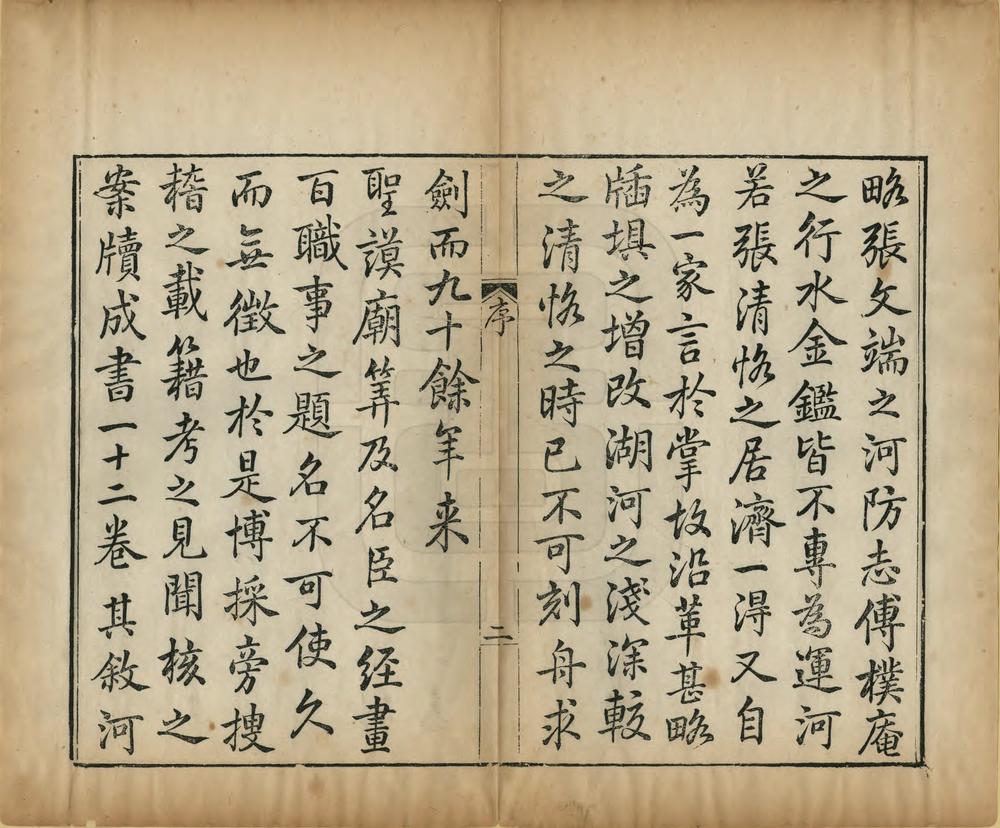 略張文端之河防志傅樸庵
之行水金鑑皆不專為運河
若張清恪之居濟一得又自
為一家言於掌故沿革甚略
牐埧之增改湖河之淺深較
之清恪之時已不可刻舟求
序
二
劍而九十餘年来
聖謨廟筭及名臣之経畫
百職事之題名不可使久
而無徵也於是博採旁搜
稽之載籍考之見聞核之
案牘成書一十二卷其敘河